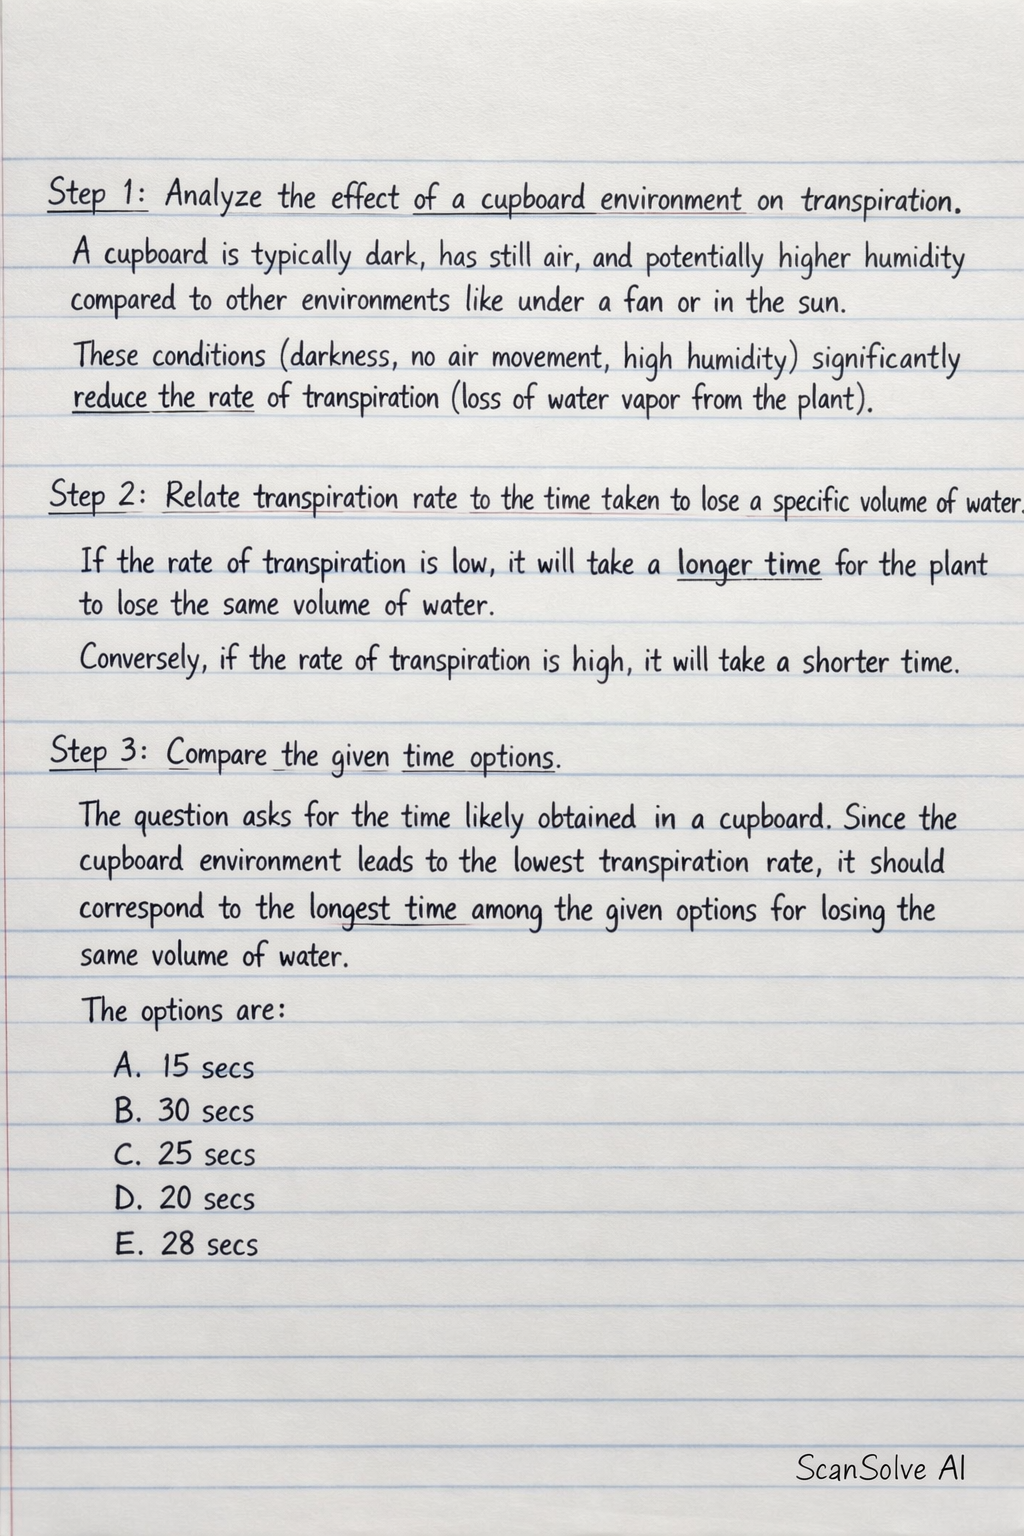 Step 1: Analyze the effect of a cupboard environment on transpiration.
A cupboard is typically dark, has still air, and potentially higher humidity
compared to other environments like under a fan or in the sun.
These conditions (darkness, no air movement, high humidity) significantly
reduce the rate of transpiration (loss of water vapor from the plant).
Step 2: Relate transpiration rate to the time taken to lose a specific volume of water.
If the rate of transpiration is low, it will take a longer time for the plant
to lose the same volume of water.
Conversely, if the rate of transpiration is high, it will take a shorter time.
Step 3: Compare the given time options.
The question asks for the time likely obtained in a cupboard. Since the
cupboard environment leads to the lowest transpiration rate, it should
correspond to the longest time among the given options for losing the
same volume of water.
The options are:
A. 15 secs
B. 30 secs
C. 25 secs
D. 20 secs
E. 28 secs
ScanSolve AI